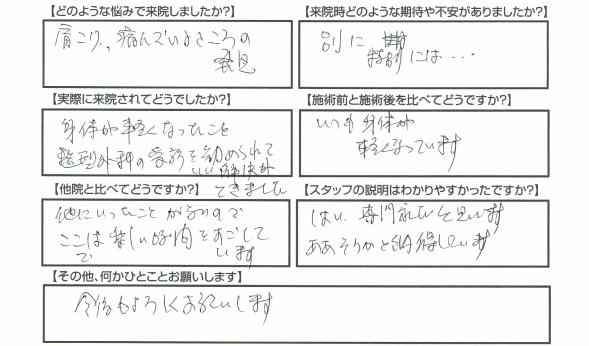 【どのような悩みで来院しましたか?】
肩こり、病んでいるところの
発見
【来院時どのような期待や不安がありましたか?】
別に
特別には・・・
【実際に来院されてどうでしたか?】
身体が軽くなったこと
整型外科の受診を勧められて
いい解決が
できました
【施術前と施術後を比べてどうですか?】
いつも身体が
軽くなっています
【他院と比べてどうですか?】
他にいったことがないので
ここは楽しい時間をすごして
います
で
【スタッフの説明はわかりやすかったですか?】
はい、専門家だと思います
ああそうかと納得しています
【その他、何かひとことお願いします】
今後もよろしくお願いします